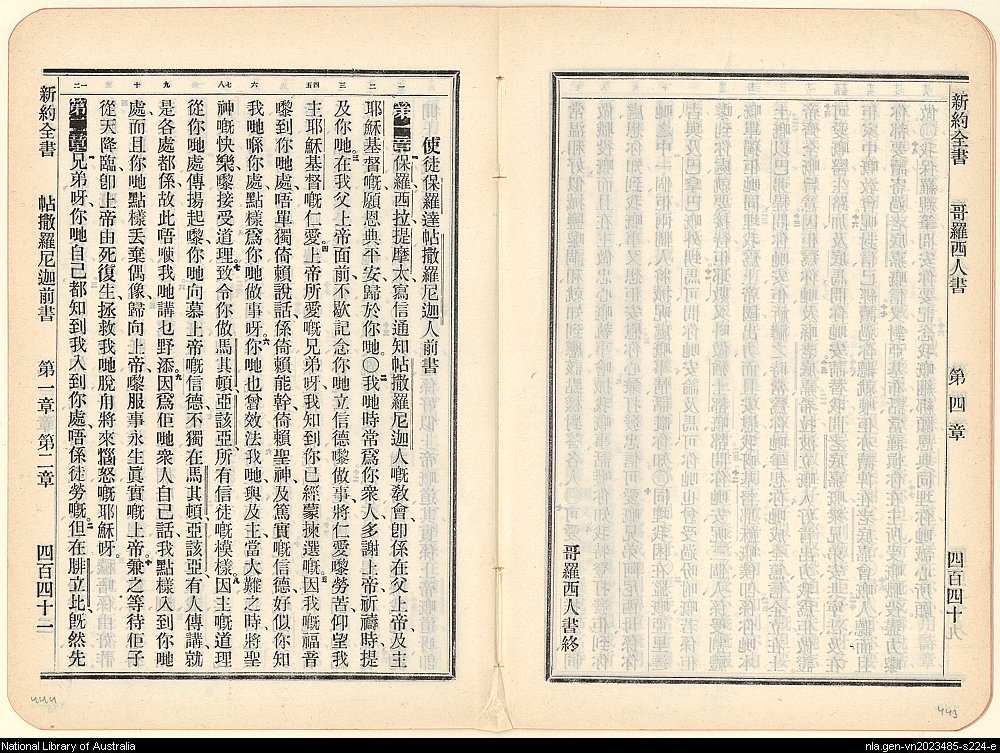 新約全書 哥羅西人書 第四章 四百四十
哥羅西人書終
使徒保羅達帖撒羅尼迦人前書
第一章 保羅西拉提摩太寫信通知帖撒羅尼迦人嘅敎會卽係在父上帝及主
耶穌基督嘅願恩典平安歸於你哋〇我哋時常爲你衆人多謝上帝祈禱時提
及你哋在我父上帝面前不歇記念你哋立信德嚟做事將仁愛嚟勞苦仰望我
主耶穌基督嘅仁愛上帝所愛嘅兄弟呀我知到你已經蒙揀選嘅因我嘅福音
嚟到你哋處唔單獨倚賴說話係倚賴能幹倚賴聖神及篤實嘅信德好似你知
我哋喺你處點樣爲你哋做事呀你哋也曾效法我哋與及主當大難之時將聖
神嘅快樂嚟接受道理致令你做馬其頓亞該亞所有信徒嘅模樣因主嘅道理
從你哋處傳揚起嚟你哋向慕上帝嘅信德不獨在馬其頓亞該亞有人傳講就
是各處都係故此唔𠸄我哋講乜野添因爲佢哋衆人自己話我點樣入到你哋
處而且你哋點樣丢棄偶像歸向上帝嚟服事永生眞實嘅上帝兼之等待佢子
從天降臨卽上帝由死復生拯救我哋脫用將來惱怒嘅耶穌呀
第二章 兄弟呀你哋自己都知到我入到你處唔係徒勞嘅但在腓立比旣然先
新約全書 帖撒羅尼迦前書 第一章 第二章 四百四十二
444
443
National Library of Australia
nla.gen-vn2023485-s224-e